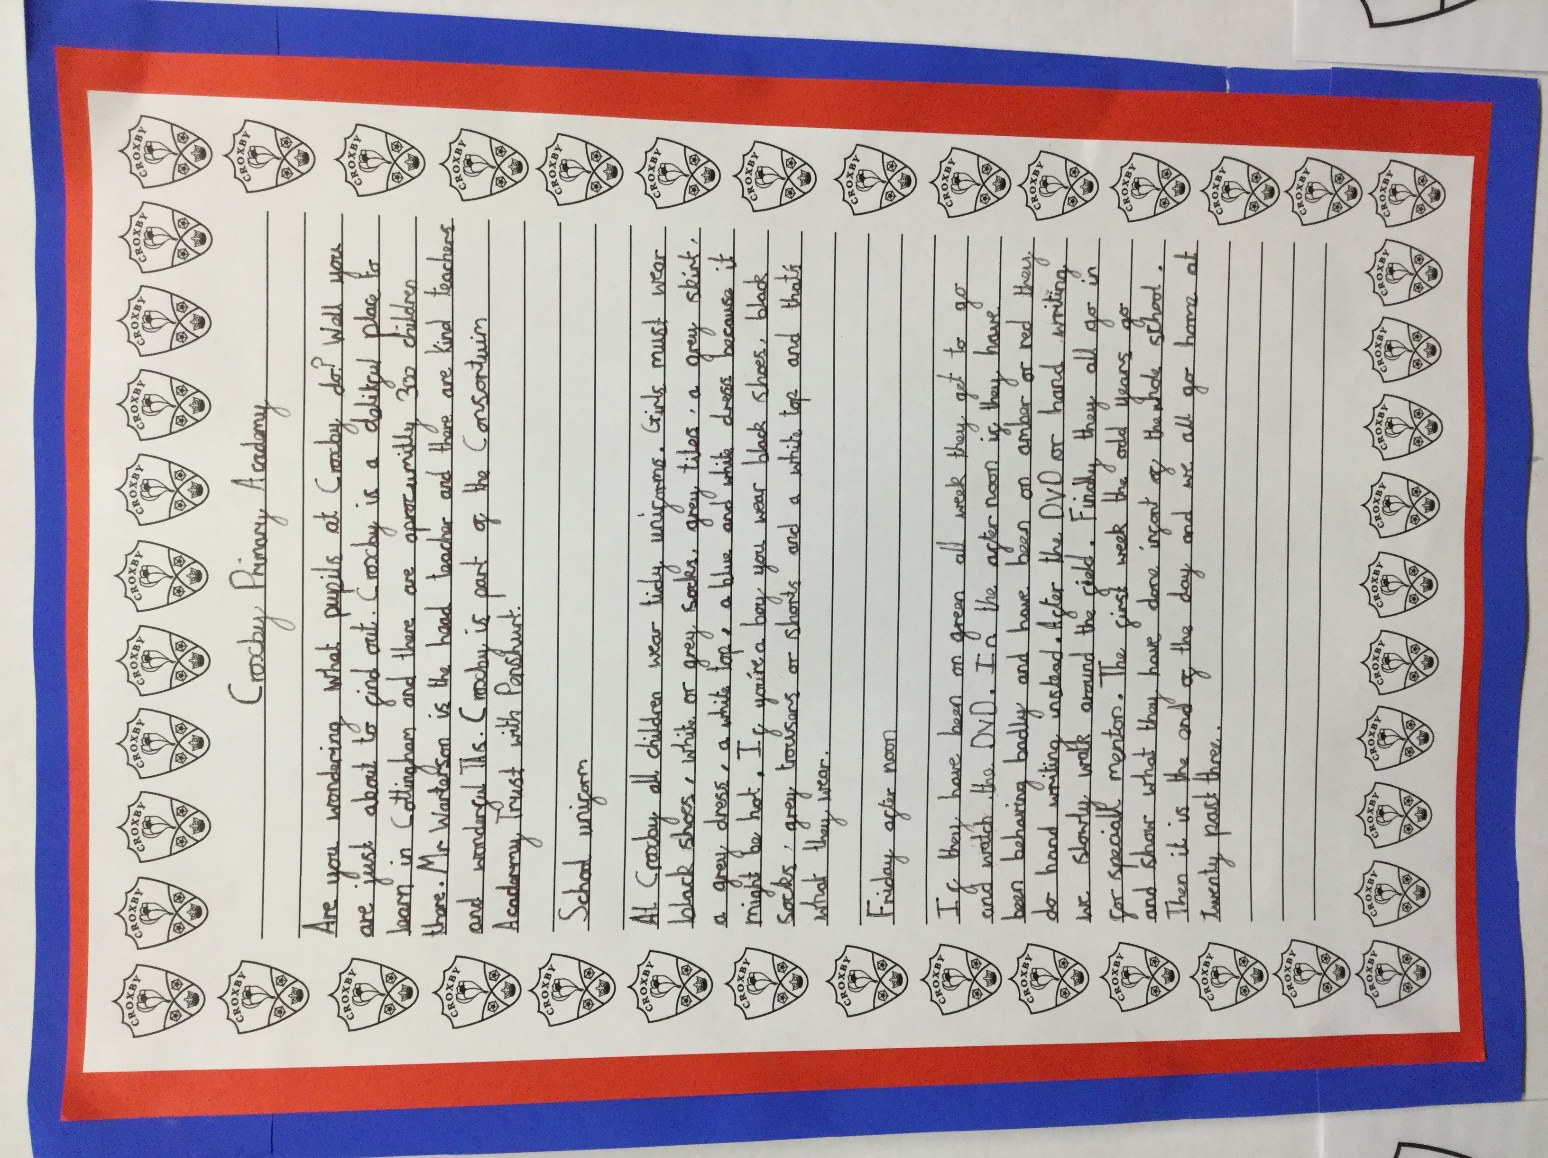 Croxby Primary Academy
Are you wondering what pupils at Croxby do? Well you
are just about to find out. Croxby is a delitful place to
learn in Cottingham and there are aproxumilly 300 children
there. Mr Waterson is the head teacher and there are kind teachers
and wonderful TAs. Croxby is part of the Consortuim
Academy Trust with Penshurt.
School uniform
At Croxby all children wear tidy uniforms. Girls must wear
black shoes, white or grey socks, grey tites, a grey skirt,
a grey dress, a white top, a blue and white dress because it
might be hot. If you're a boy you wear black shoes, black
socks, grey trousers or shorts and a white top and thats
what they wear.
Friday after noon
If they have been on green all week they get to go
and watch the DVD. In the after noon if they have
been behaving badly and have been on amber or red they
do hand writing instead. After the DVD or hand writing
we slowly walk around the field. Finally they all go in
for special mentos. The first week the odd years go
and show what they have done infront of the whole school.
Then it is the end of the day and we all go home at
twenty past three.
CROXBY